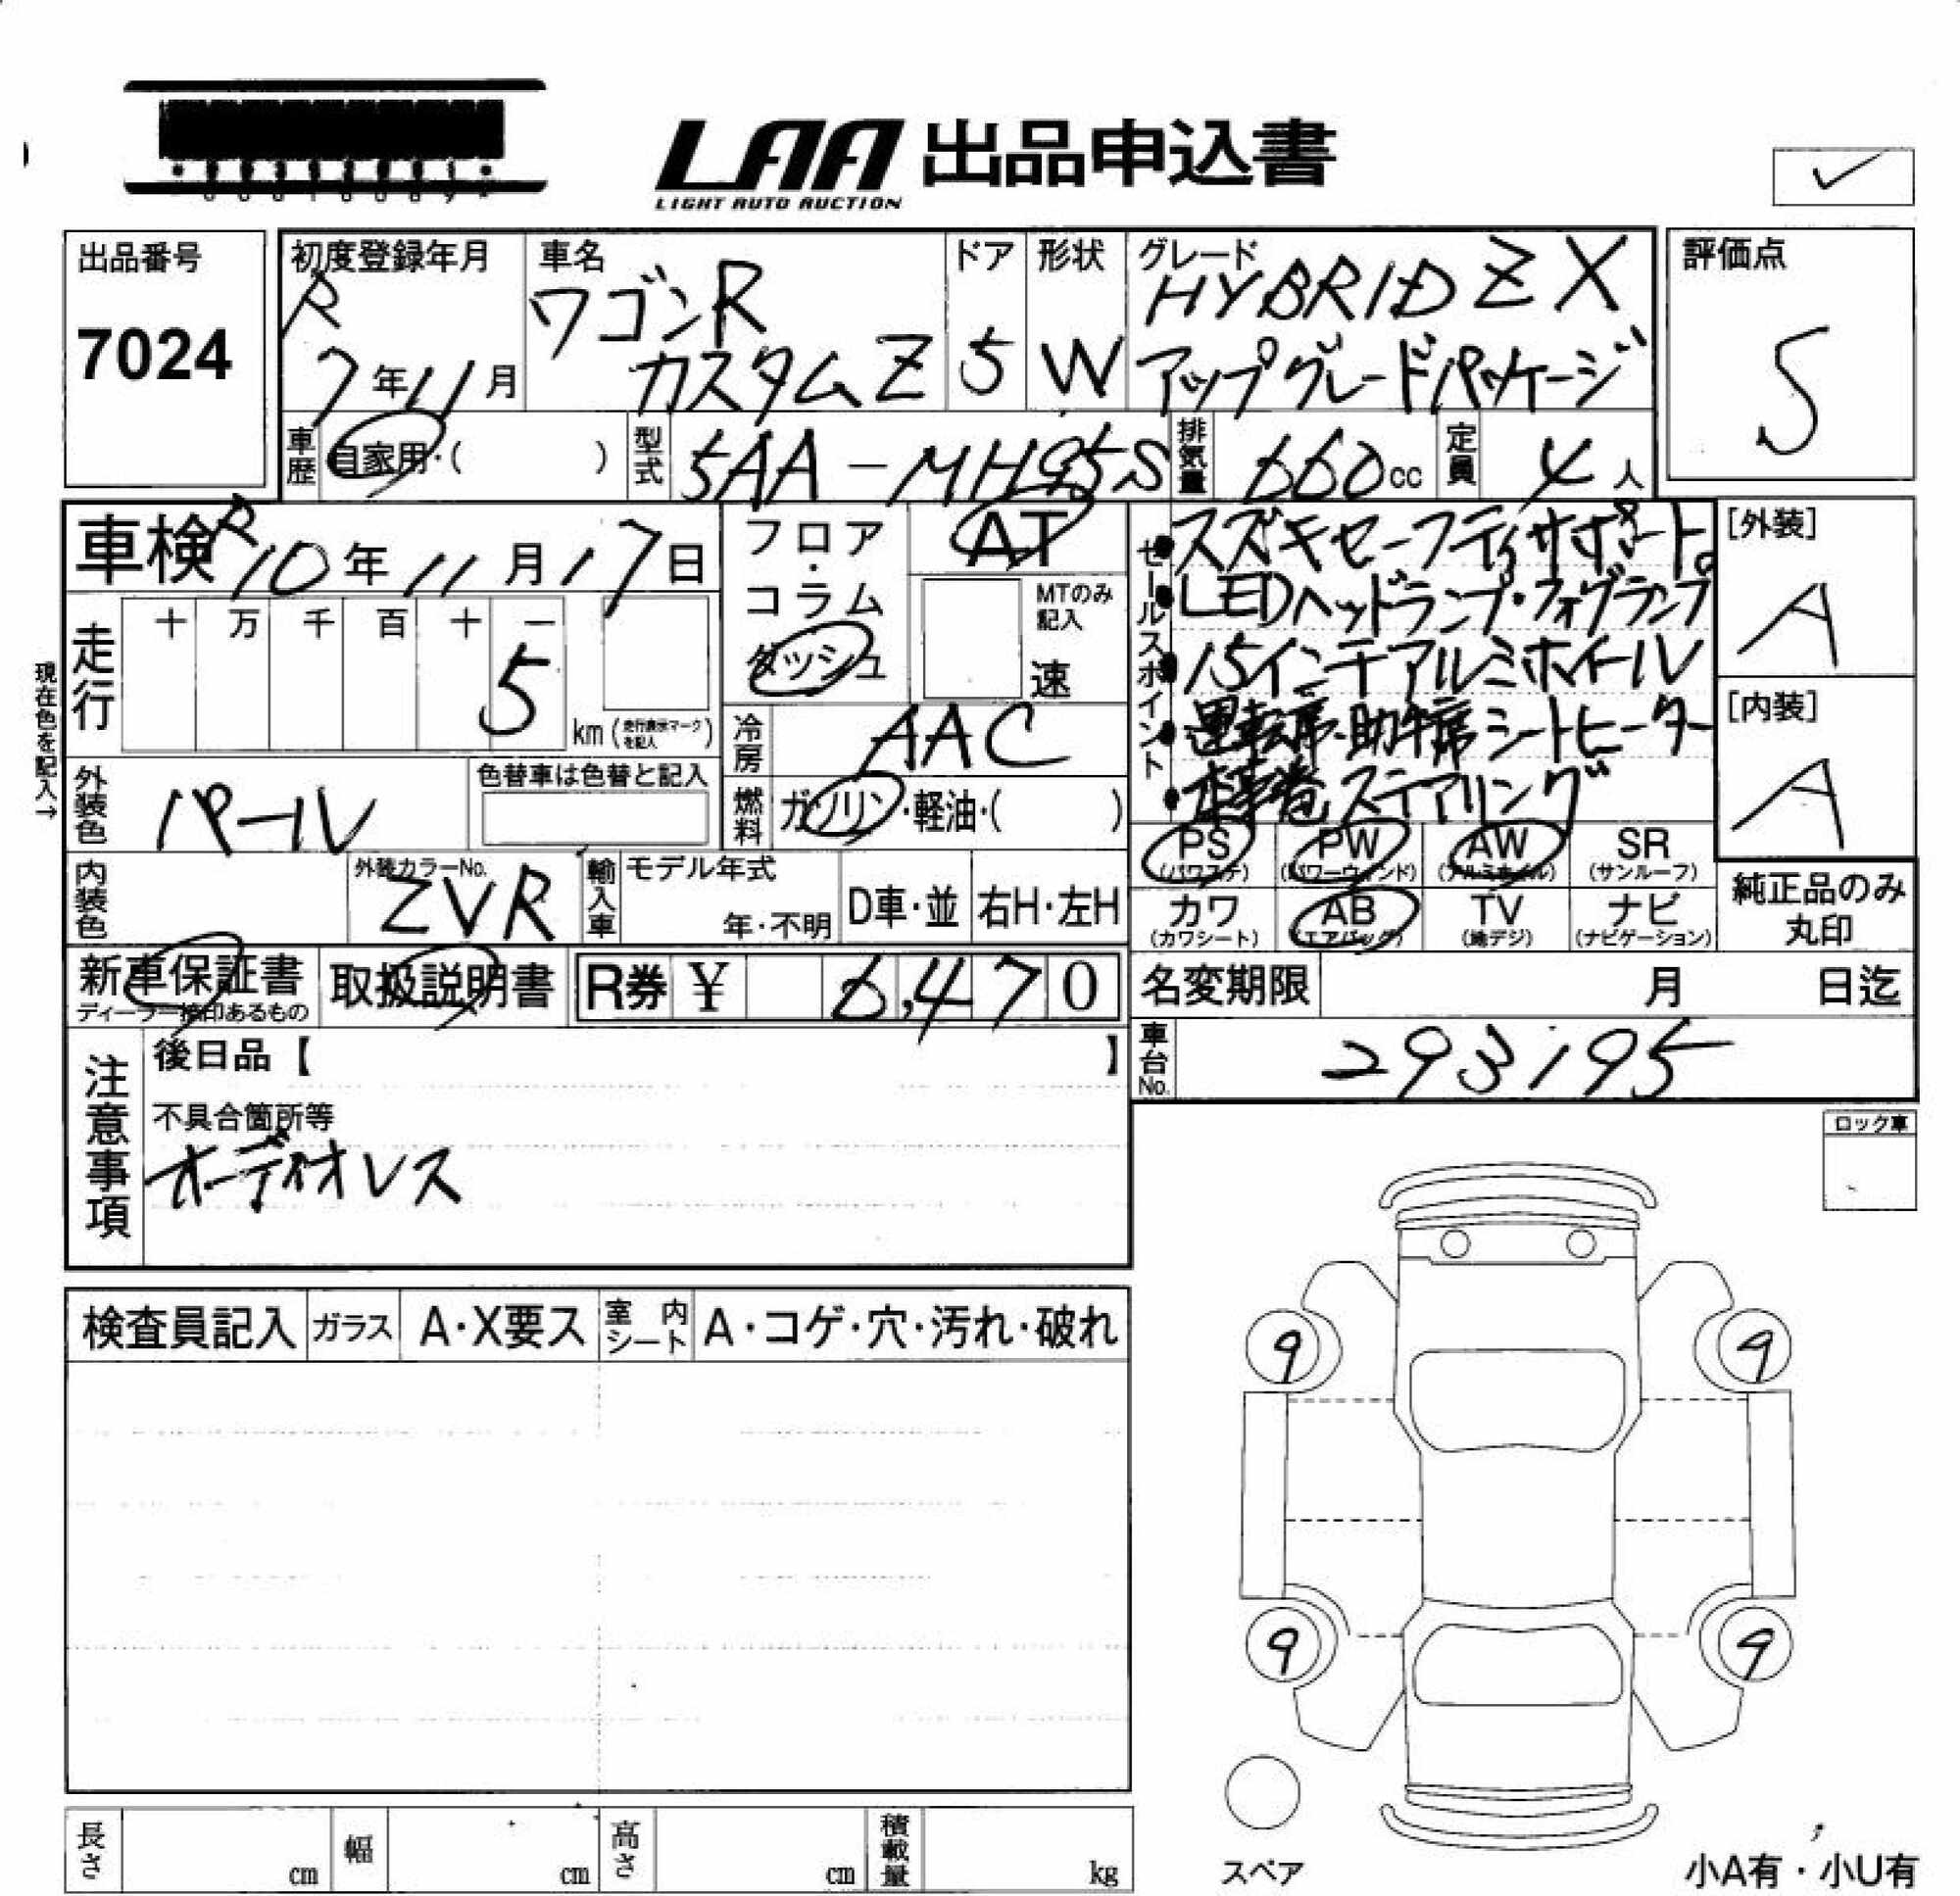 LAA 出品申込書
LIGHT AUTO AUCTION
出品番号
7024
初度登録年月
R
7年11月
車名
ワゴンR
カスタムZ
ドア
5
形状
W
グレード
HYBRID ZX
アップグレードパッケージ
評価点
S
車歴
自家用・( )
型式
5AA-MH95S
排気量
660cc
定員
4人
車検
R10年11月17日
フロア・
コラム
ダッシュ
AT
MTのみ
記入
速
現在色を記入→
走行
十 万 千 百 十 一
5
km(走行表示マークを記入)
冷房
AAC
燃料
ガソリン・軽油・( )
外装色
パール
色替車は色替と記入
内装色
外装カラーNo.
ZVR
輸入車
モデル年式
年・不明
D車・並
右H・左H
セールスポイント
スズキセーフティサポート。
LEDヘッドランプ・フォグランプ
15インチアルミホイール
運転席・助手席シートヒーター
本革巻ステアリング
[外装]
A
[内装]
A
PS
(パワステ)
PW
(パワーウィンド)
AW
(アルミホイル)
SR
(サンルーフ)
カワ
(カワシート)
AB
(エアバッグ)
TV
(地デジ)
ナビ
(ナビゲーション)
純正品のみ
丸印
新車保証書
ディーラー捺印あるもの
取扱説明書
R券 ¥ 6,470
名変期限 月 日迄
車台No.
293195
注意事項
後日品【 】
不具合箇所等
オーディオレス
ロック車
検査員記入
ガラス
A・X要ス
室内シート
A・コゲ・穴・汚れ・破れ
9
9
9
9
スペア
小A有・小U有
長さ cm
幅 cm
高さ cm
積載量 kg